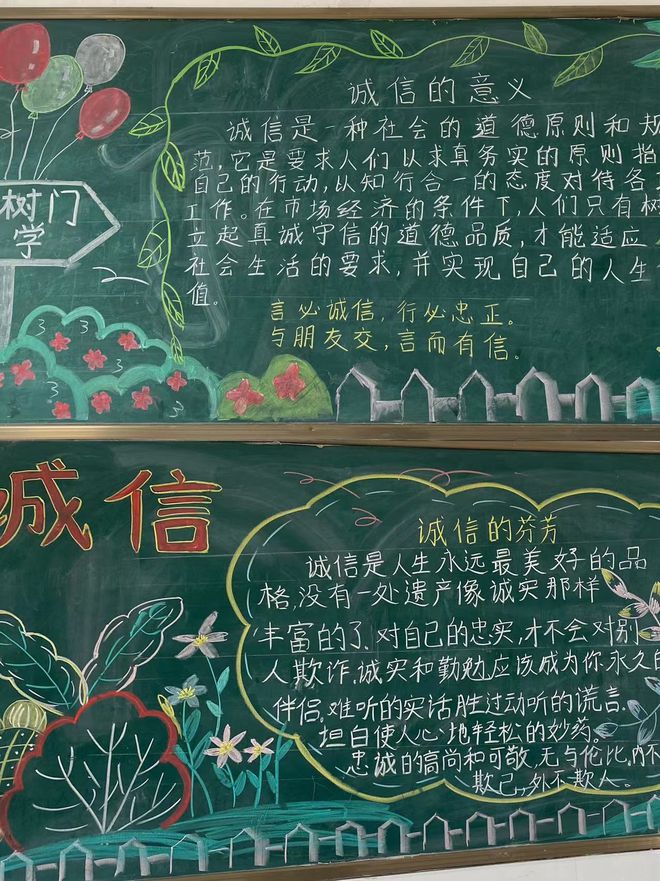 树门
学
诚信的意义
诚信是一种社会的道德原则和规
范,它是要求人们以求真务实的原则指
自己的行动,以知行合一的态度对待各
工作。在市场经济的条件下,人们只有树
立起真诚守信的道德品质,才能适应
社会生活的要求,并实现自己的人生
值。
言必诚信,行必忠正。
与朋友交,言而有信。
诚信
诚信的芬芳
诚信是人生永远最美好的品
格,没有一处遗产像诚实那样
丰富的了、对自己的忠实,才不会对别
人欺诈、诚实和勤勉应该成为你永久的
伴侣,难听的实话胜过动听的谎言.
坦白使人心地轻松的妙药。
忠诚的高尚和可敬,无与伦比,内不
欺己,外不欺人。